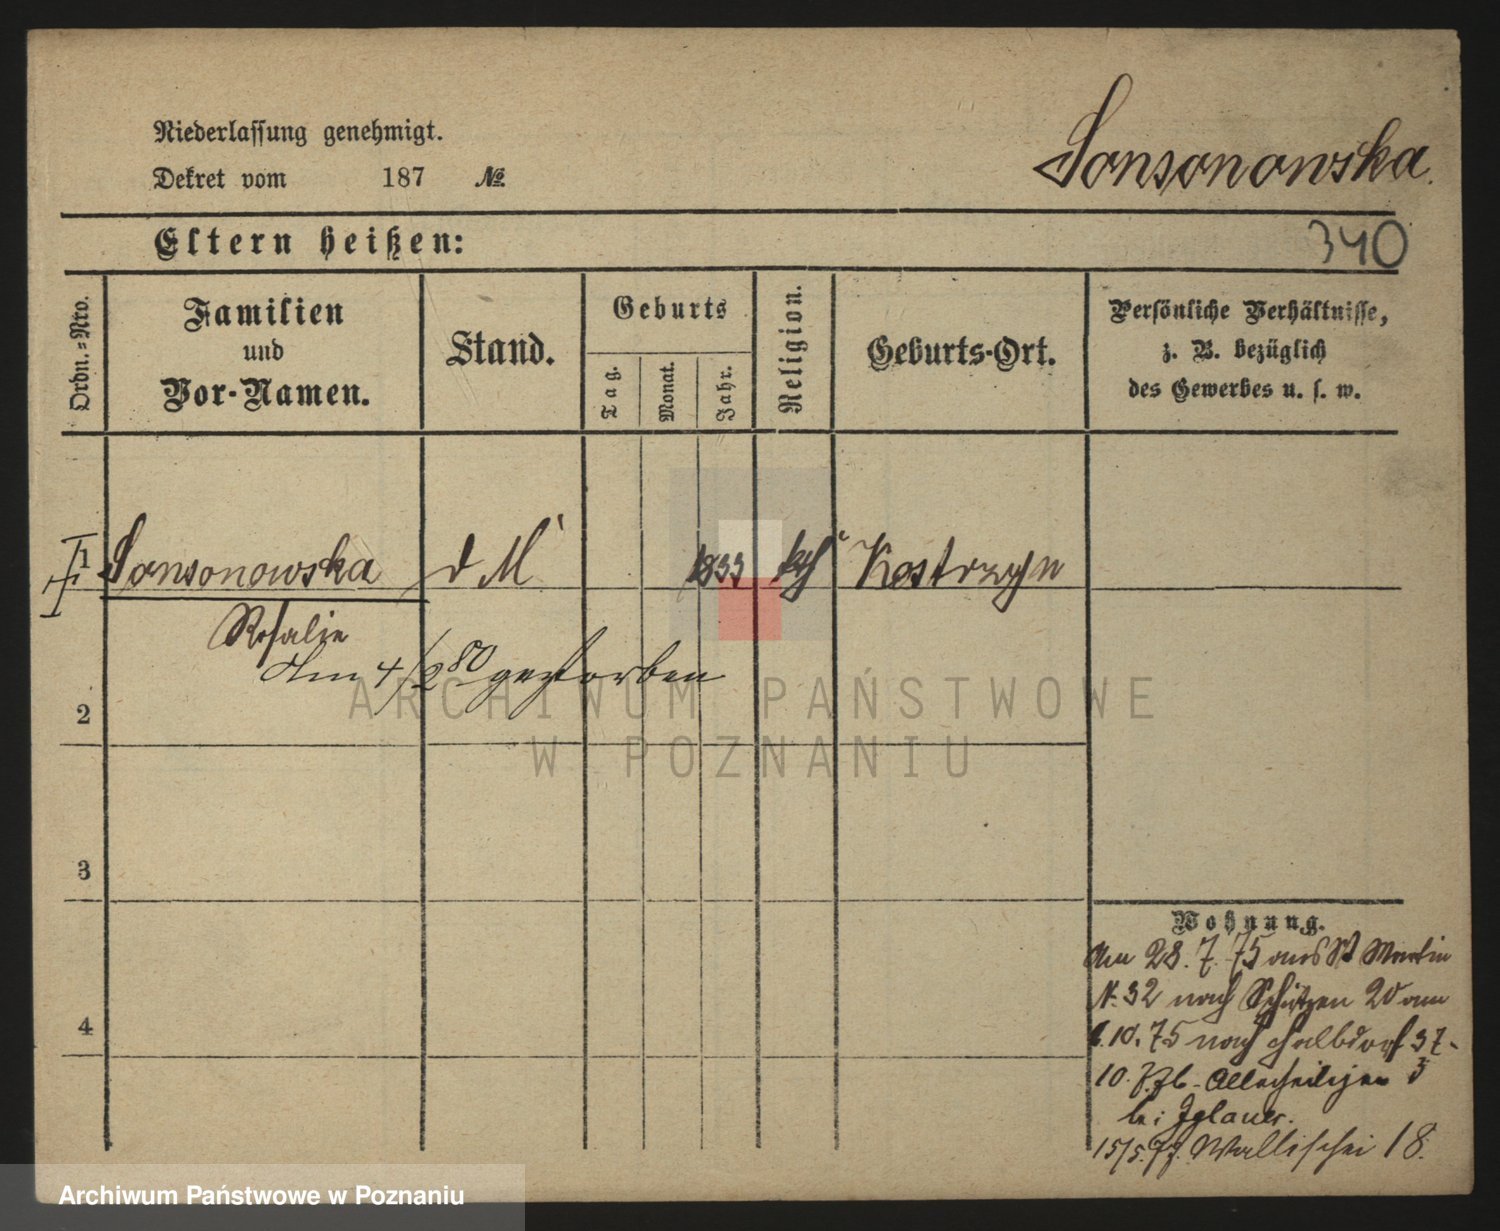 Niederlassung genehmigt.
Dekret vom 187 №
Sonsonowska.
Eltern heißen:
340
Ordn.-Nro.
Familien
und
Vor-Namen.
Stand.
Geburts
Tag.
Monat.
Jahr.
Religion.
Geburts-Ort.
Persönliche Verhältnisse,
z. B. bezüglich
des Gewerbes u. s. w.
1 Sonsonowska d M 1833 kth Kostrzyn
Rosalie
Am 4/2 80 gestorben
2
ARCHIWUM PAŃSTWOWE
W POZNANIU
3
4
Wohnung.
Am 28. 7. 75 aus St Martin
N. 32 nach Schützen 20 am
10. 75 nach Halbdorf 37-
10. Allerheiligen 5
bei Iglauer.
15/5. 77. Wallischei 18.
Archiwum Państwowe w Poznaniu